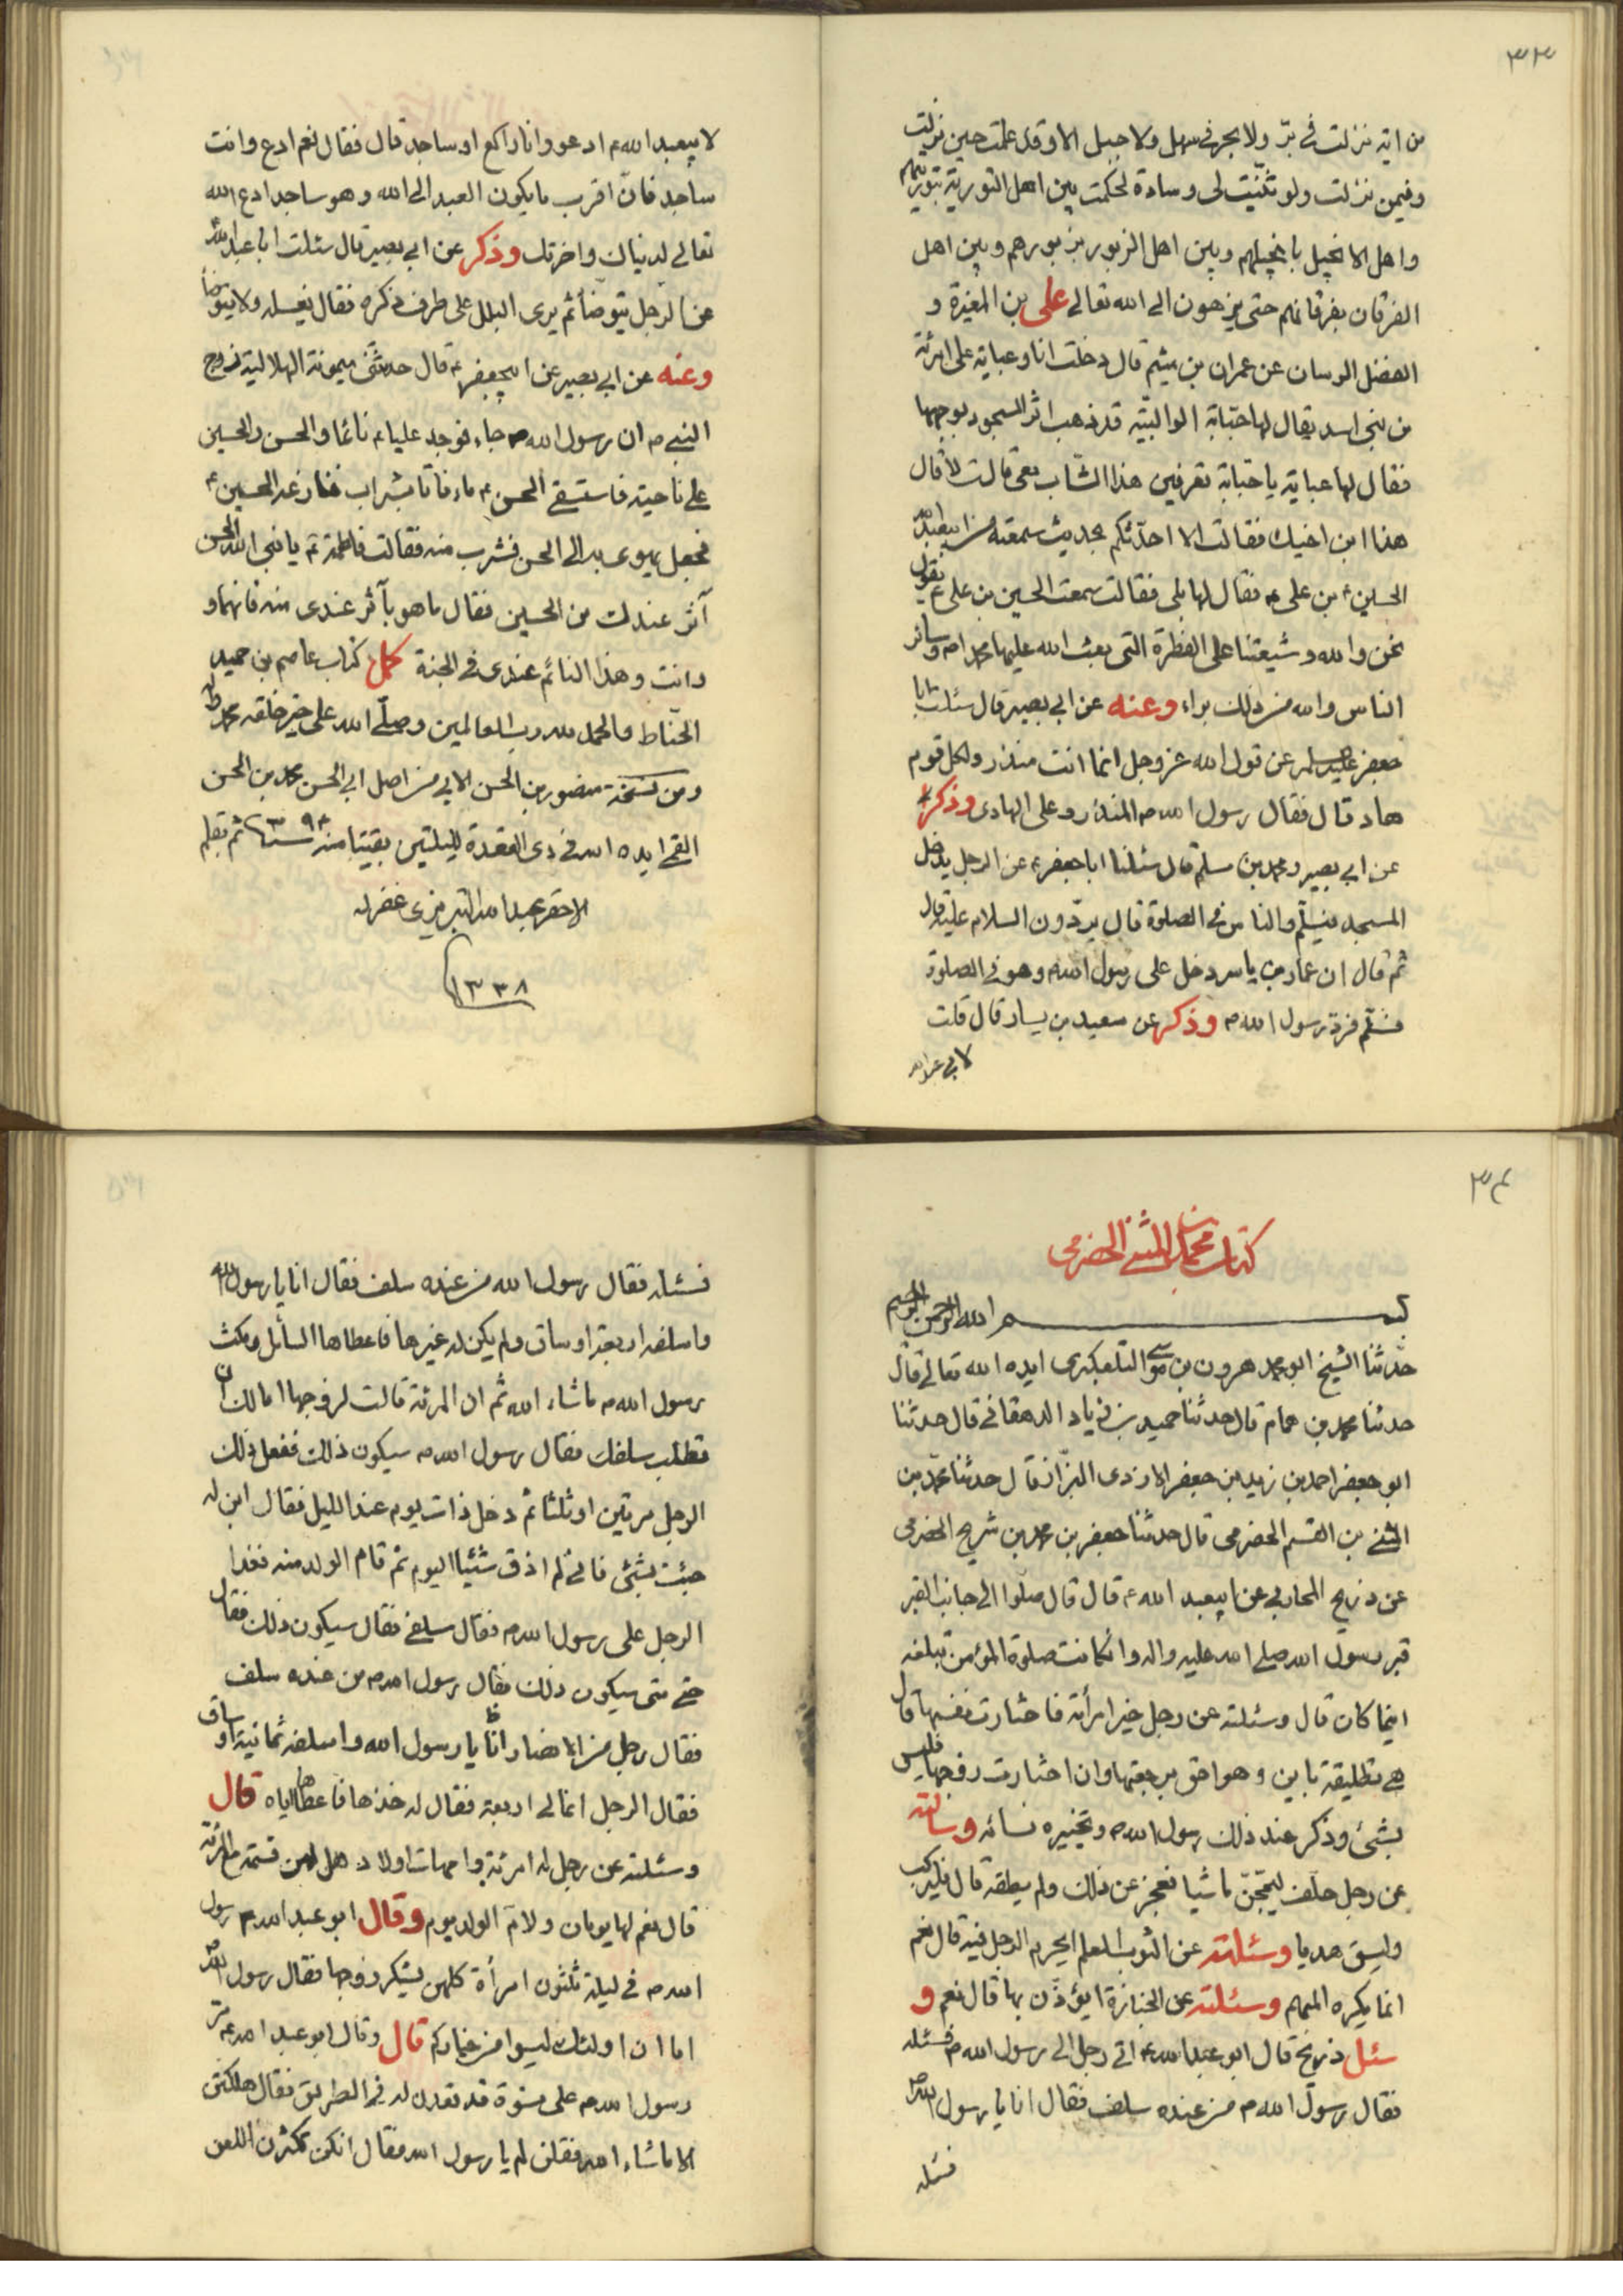 ٣٣
من اية نزلت فى بر ولا بحر فى سهل ولا جبل الا وقد علمت حين نزلت
وفيمن نزلت ولو ثنيت لى وسادة لحكمت بين اهل التورية بتوريتهم
واهل الانجيل بانجيلهم وبين اهل الزبور بزبورهم وبين اهل
الفرقان بفرقانهم حتى يزهون الى الله تعالى على بن المغيرة و
الفضل الرسان عن عمران بن ميثم قال دخلت انا وعباية على امرئة
من بنى اسد يقال لها حبابة الوالبيّة قد ذهب اثر السجود بوجهها
فقال لها عباية يا حبابة تعرفين هذا الشّاب معى قالت لا قال
هذا ابن اخيك فقالت الا احدّثكم بحديث سمعته من ابيعبد الله
الحسين ع بن على ع فقال لها بلى فقالت سمعت الحسين بن على ع يقول
نحن والله وشيعتنا على الفطرة التى بعث الله عليها محمدا ص وسائر
الناس والله من ذلك براء وعنه عن ابى بصير قال سئلت ابا
جعفر عليه السلم عن قول الله عز وجل انما انت منذر ولكل قوم
هاد قال فقال رسول الله ص المنذر وعلى الهادى وذكر
عن ابى بصير ومحمد بن مسلم قال سئلنا ابا جعفر ع عن الرجل يدخل
المسجد فيسلّم والناس فى الصلوة قال يردّون السلام عليه قال
ثم قال ان عمار بن ياسر دخل على رسول الله ص وهو فى الصلوة
فسلّم فردّ رسول الله ص وذكر عن سعيد بن يسار قال قلت
لابى عبد الله
لابيعبد الله ع ادعو وانا راكع او ساجد قال فقال نعم ادع وانت
ساجد فانّ اقرب ما يكون العبد الى الله وهو ساجد ادع الله
تعالى لدنياك واخرتك وذكر عن ابى بصير قال سئلت ابا عبد الله
عن الرجل يتوضأ ثم يرى البلل على طرف ذكره فقال يغسله ولا يتوضأ
وعنه عن ابى بصير عن ابيجعفر ع قال حدثتنى ميمونة الهلالية زوج
النبى ص ان رسول الله ص جاء فوجد عليا ع نائما والحسن والحسين
على ناحيته فاستسقى الحسن ع ماء فاتا بشراب فنازعه الحسين ع
فجعل يهوى به الى الحسن فشرب منه فقالت فاطمة ع يا نبى الله الحسن
آثر عندك من الحسين فقال ما هو بآثر عندى منه فانهما و
وانت وهذا النائم عندى فى الجنة كمل كتاب عاصم بن حميد
الحنّاط والحمد لله رب العالمين وصلّى الله على خير خلقه محمد
ومن نسخة منصور بن الحسن الابى من اصل ابى الحسن محمد بن الحسن
القمى ايده الله فى ذى القعدة لليلتين بقيتا منه سنة ٣٩٤ ثم بقلم
الاحقر عبد الله التبريزى غفر له
١٣٣٨
٣٤
كتاب محمد بن المثنى الحضرمى
بسم الله الرحمن الرحيم
حدّثنا الشيخ ابو محمد هرون بن موسى التلعكبرى ايده الله تعالى قال
حدثنا محمد بن همام قال حدثنا حميد بن زياد الدهقانى قال حدثنا
ابو جعفر احمد بن زيد بن جعفر الازدى البزّاز قال حدثنا محمد بن
المثنى بن القسم الحضرمى قال حدثنا جعفر بن محمد بن شريح الحضرمى
عن ذريح المحاربى عن ابيعبد الله ع قال قال صلّوا الى جانب القبر
قبر رسول الله صلى الله عليه واله وان كانت صلوة المؤمن تبلغه
اينما كان قال وسئلته عن رجل خير امرأته فاختارت نفسها قال
هى تطليقة باين وهو احق برجعتها وان اختارت زوجها فليس
بشئ وذكر عند ذلك رسول الله ص وتخييره نسائه وسألته
عن رجل حلف ليحجّن ماشيا فعجز عن ذلك ولم يطقه قال فليركب
وليسق هديا وسئلته عن الثوب المعلم ايحرم الرجل فيه قال نعم
انما يكره الملحم وسئلته عن الجنازة ايؤذّن بها قال نعم و
سئل ذريح قال ابو عبد الله ع اتى رجل الى رسول الله ص فسئله
فقال رسول الله ص من عنده سلف فقال انا يا رسول الله
فسئله
فسئله فقال رسول الله من عنده سلف فقال انا يا رسول الله
واسلفه اربعة اوساق ولم يكن له غيرها فاعطاها السائل ومكث
رسول الله ص ما شاء الله ثم ان المرئة قالت لزوجها اما لك ان
تطلب سلفك فقال رسول الله ص سيكون ذلك ففعل ذلك
الرجل مرتين او ثلثا ثم دخل ذات يوم عند الليل فقال ابن له
جئت بشئ فانى لم اذق شيئا اليوم ثم قام الولد منه فغدا
الرجل على رسول الله ص فقال سلفى فقال سيكون ذلك فقال
حتى متى سيكون ذلك فقال رسول الله ص من عنده سلف
فقال رجل من الانصار انا يا رسول الله واسلفه ثمانية اوساق
فقال الرجل انما لى اربعة فقال له خذها فاعطاها اياه قال
وسئلته عن رجل له امرئة وامهات اولاد هل لهن قسمة مع المرئة
قال نعم لها يومان ولامّ الولد يوم وقال ابو عبد الله ع رسول
الله ص فى ليلة ثلثون امرأة كلهن يشكو زوجها فقال رسول الله ص
اما ان اولئك ليسوا من خياركم قال وقال ابو عبد الله ع مر
رسول الله ص على نسوة قد قعدن له فى الطريق فقال هلكتن
الا ما شاء الله فقلن لم يا رسول الله فقال انكن تكثرن اللعن